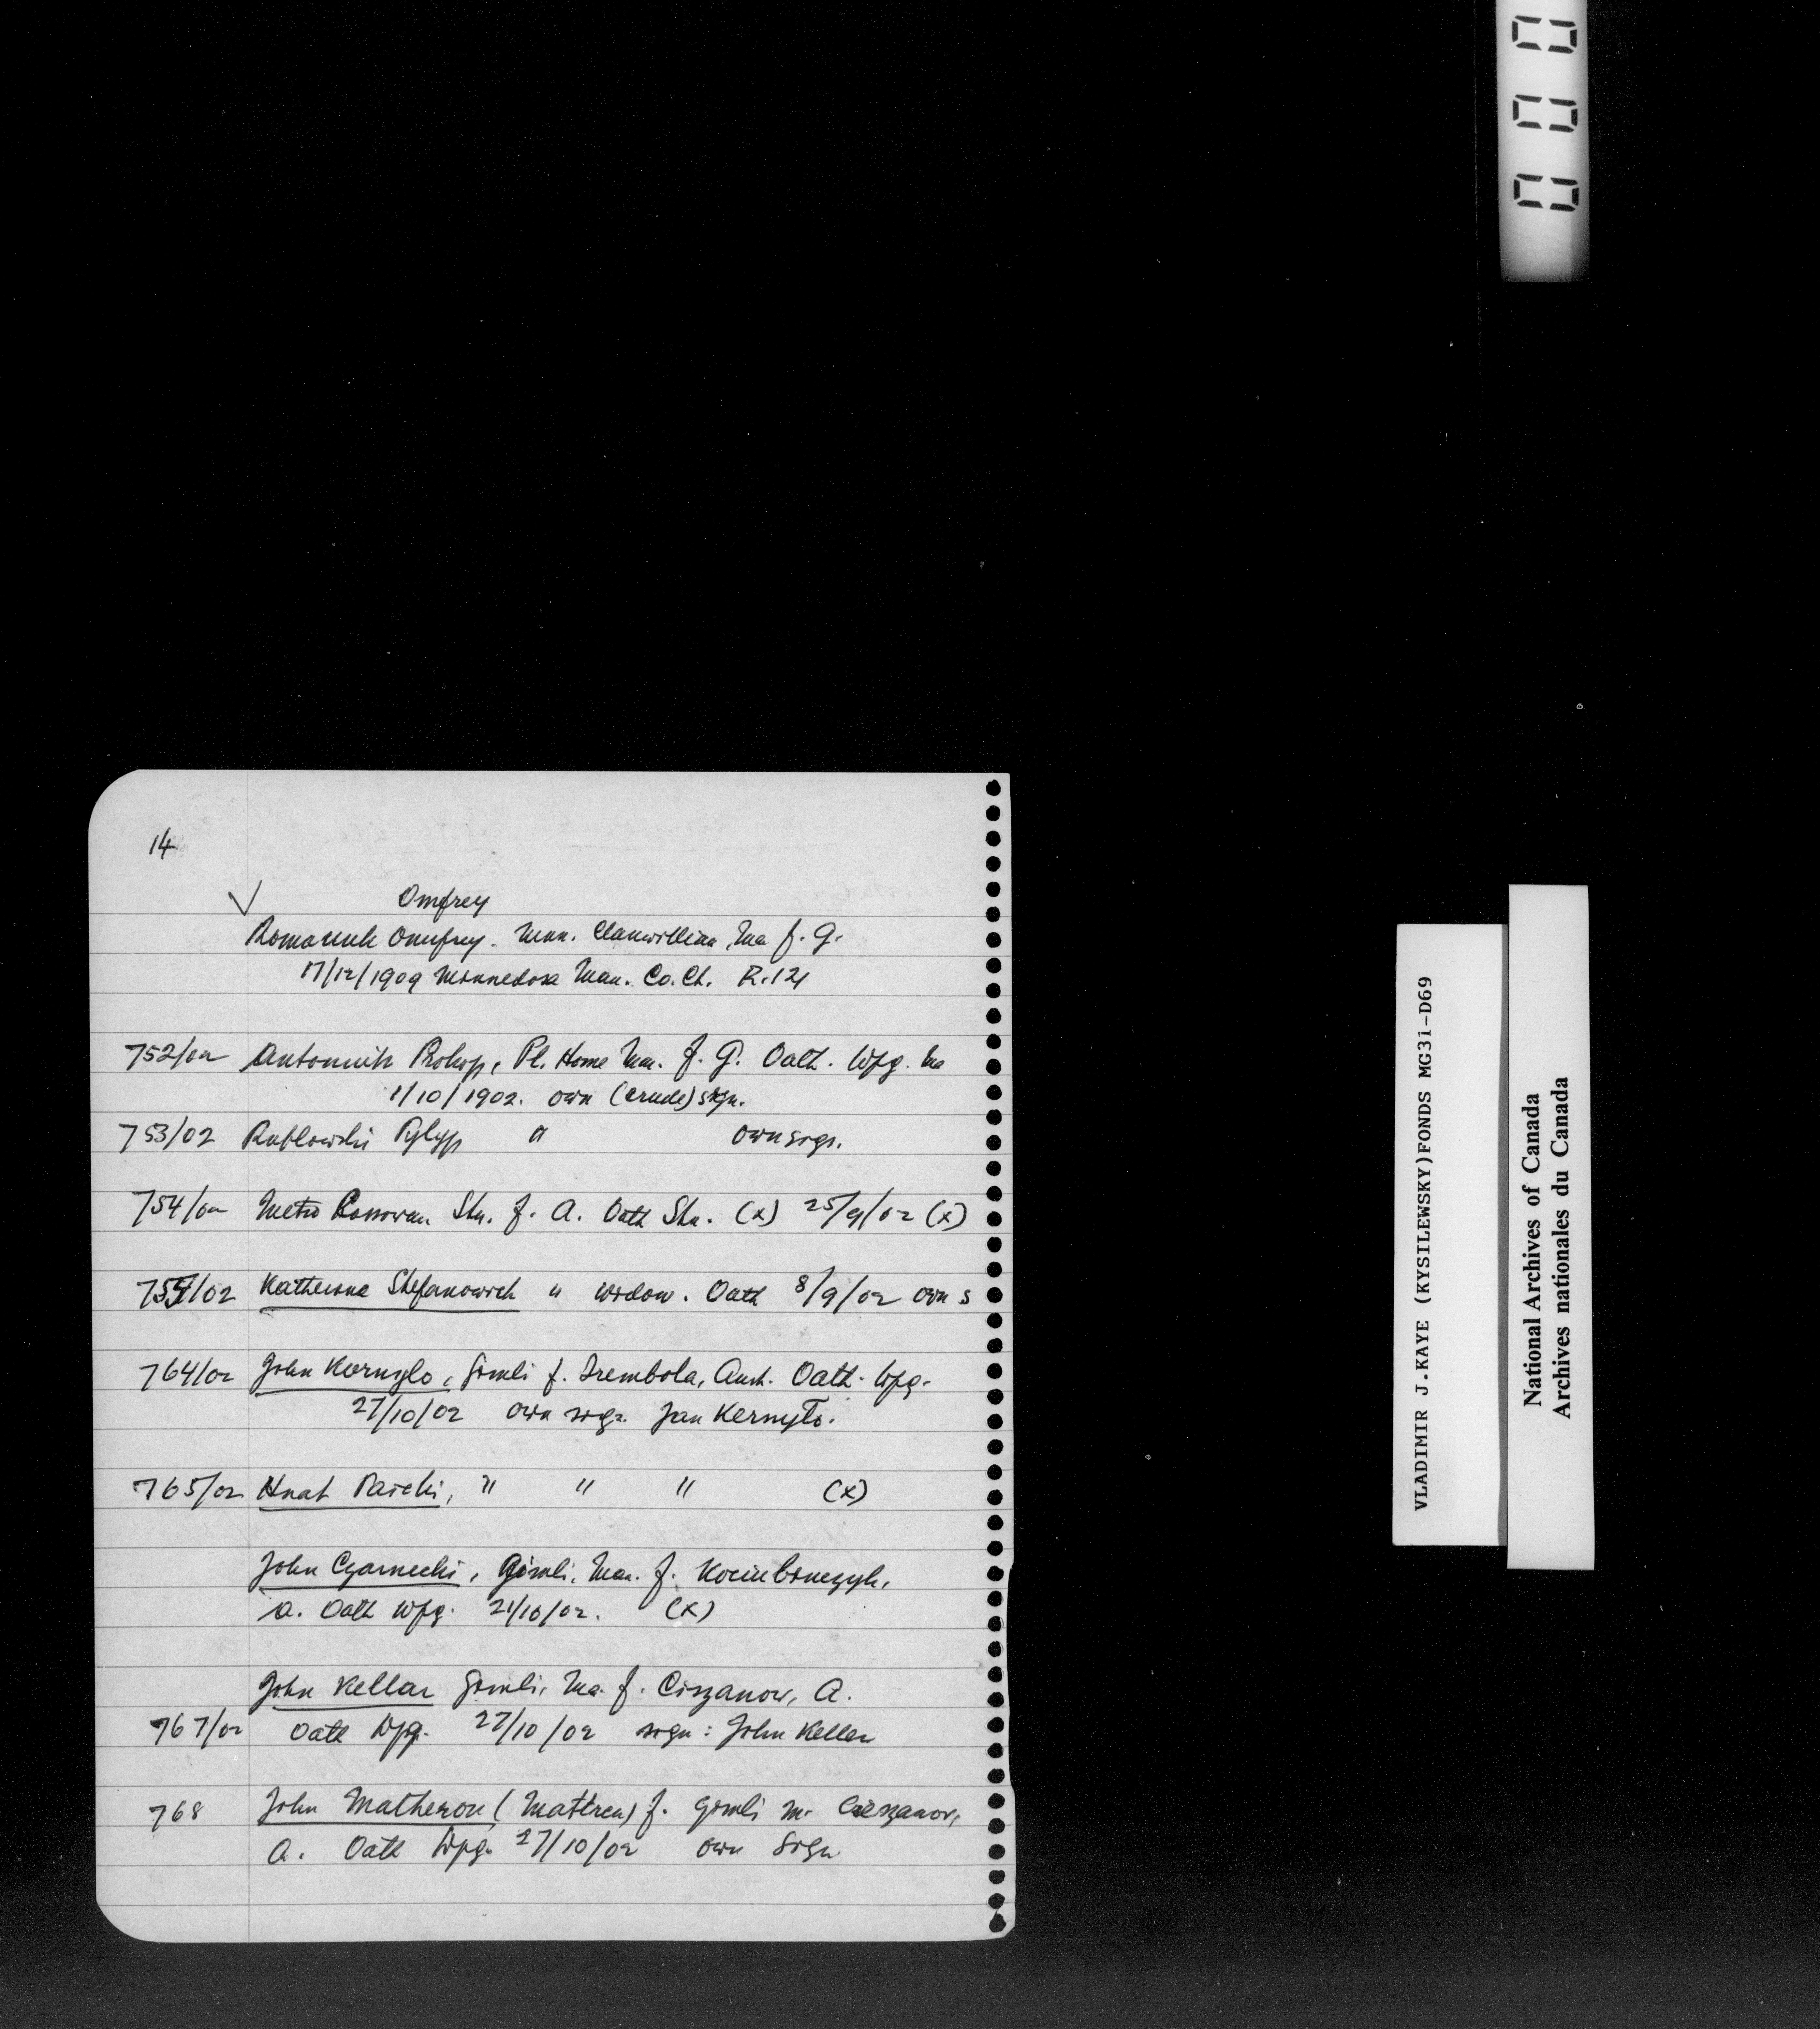 000
14
✓ Omfrey
Romaniuk Onufrey. Man. Clanwilliam, Ma f. G.
17/12/1909 Minnedosa Man. Co. Ct. R.121
752/02 Antoniuk Prokop, Pl. Home Man. f. G. Oath. Wpg. Ma
1/10/1902. own (crude) sign.
753/02 Rublowski Pylyp " own sign.
754/02 Metro Stu. f. A. Oath Stu. (x) 25/9/02 (x)
755/02 Katherina Stefanowich " widow. Oath 8/9/02 own s
764/02 John Kornylo, Gimli f. Trembola, Aust. Oath. Wpg.
27/10/02 own sign. Jan Kernyło.
765/02 Hnat " " " (x)
John Czarnecki, Gimli, Man. f.
A. Oath Wpg. 21/10/02. (x)
John Kellar Gimli, Ma. f. Ciszanow, A.
767/02 Oath Wpg. 27/10/02 sign: John Keller
768 John Matheron (Mattren) f. Gimli M. Cieszanov,
A. Oath Wpg. 27/10/02 own sign
VLADIMIR J.KAYE (KYSILEWSKY)FONDS MG31-D69
National Archives of Canada
Archives nationales du Canada